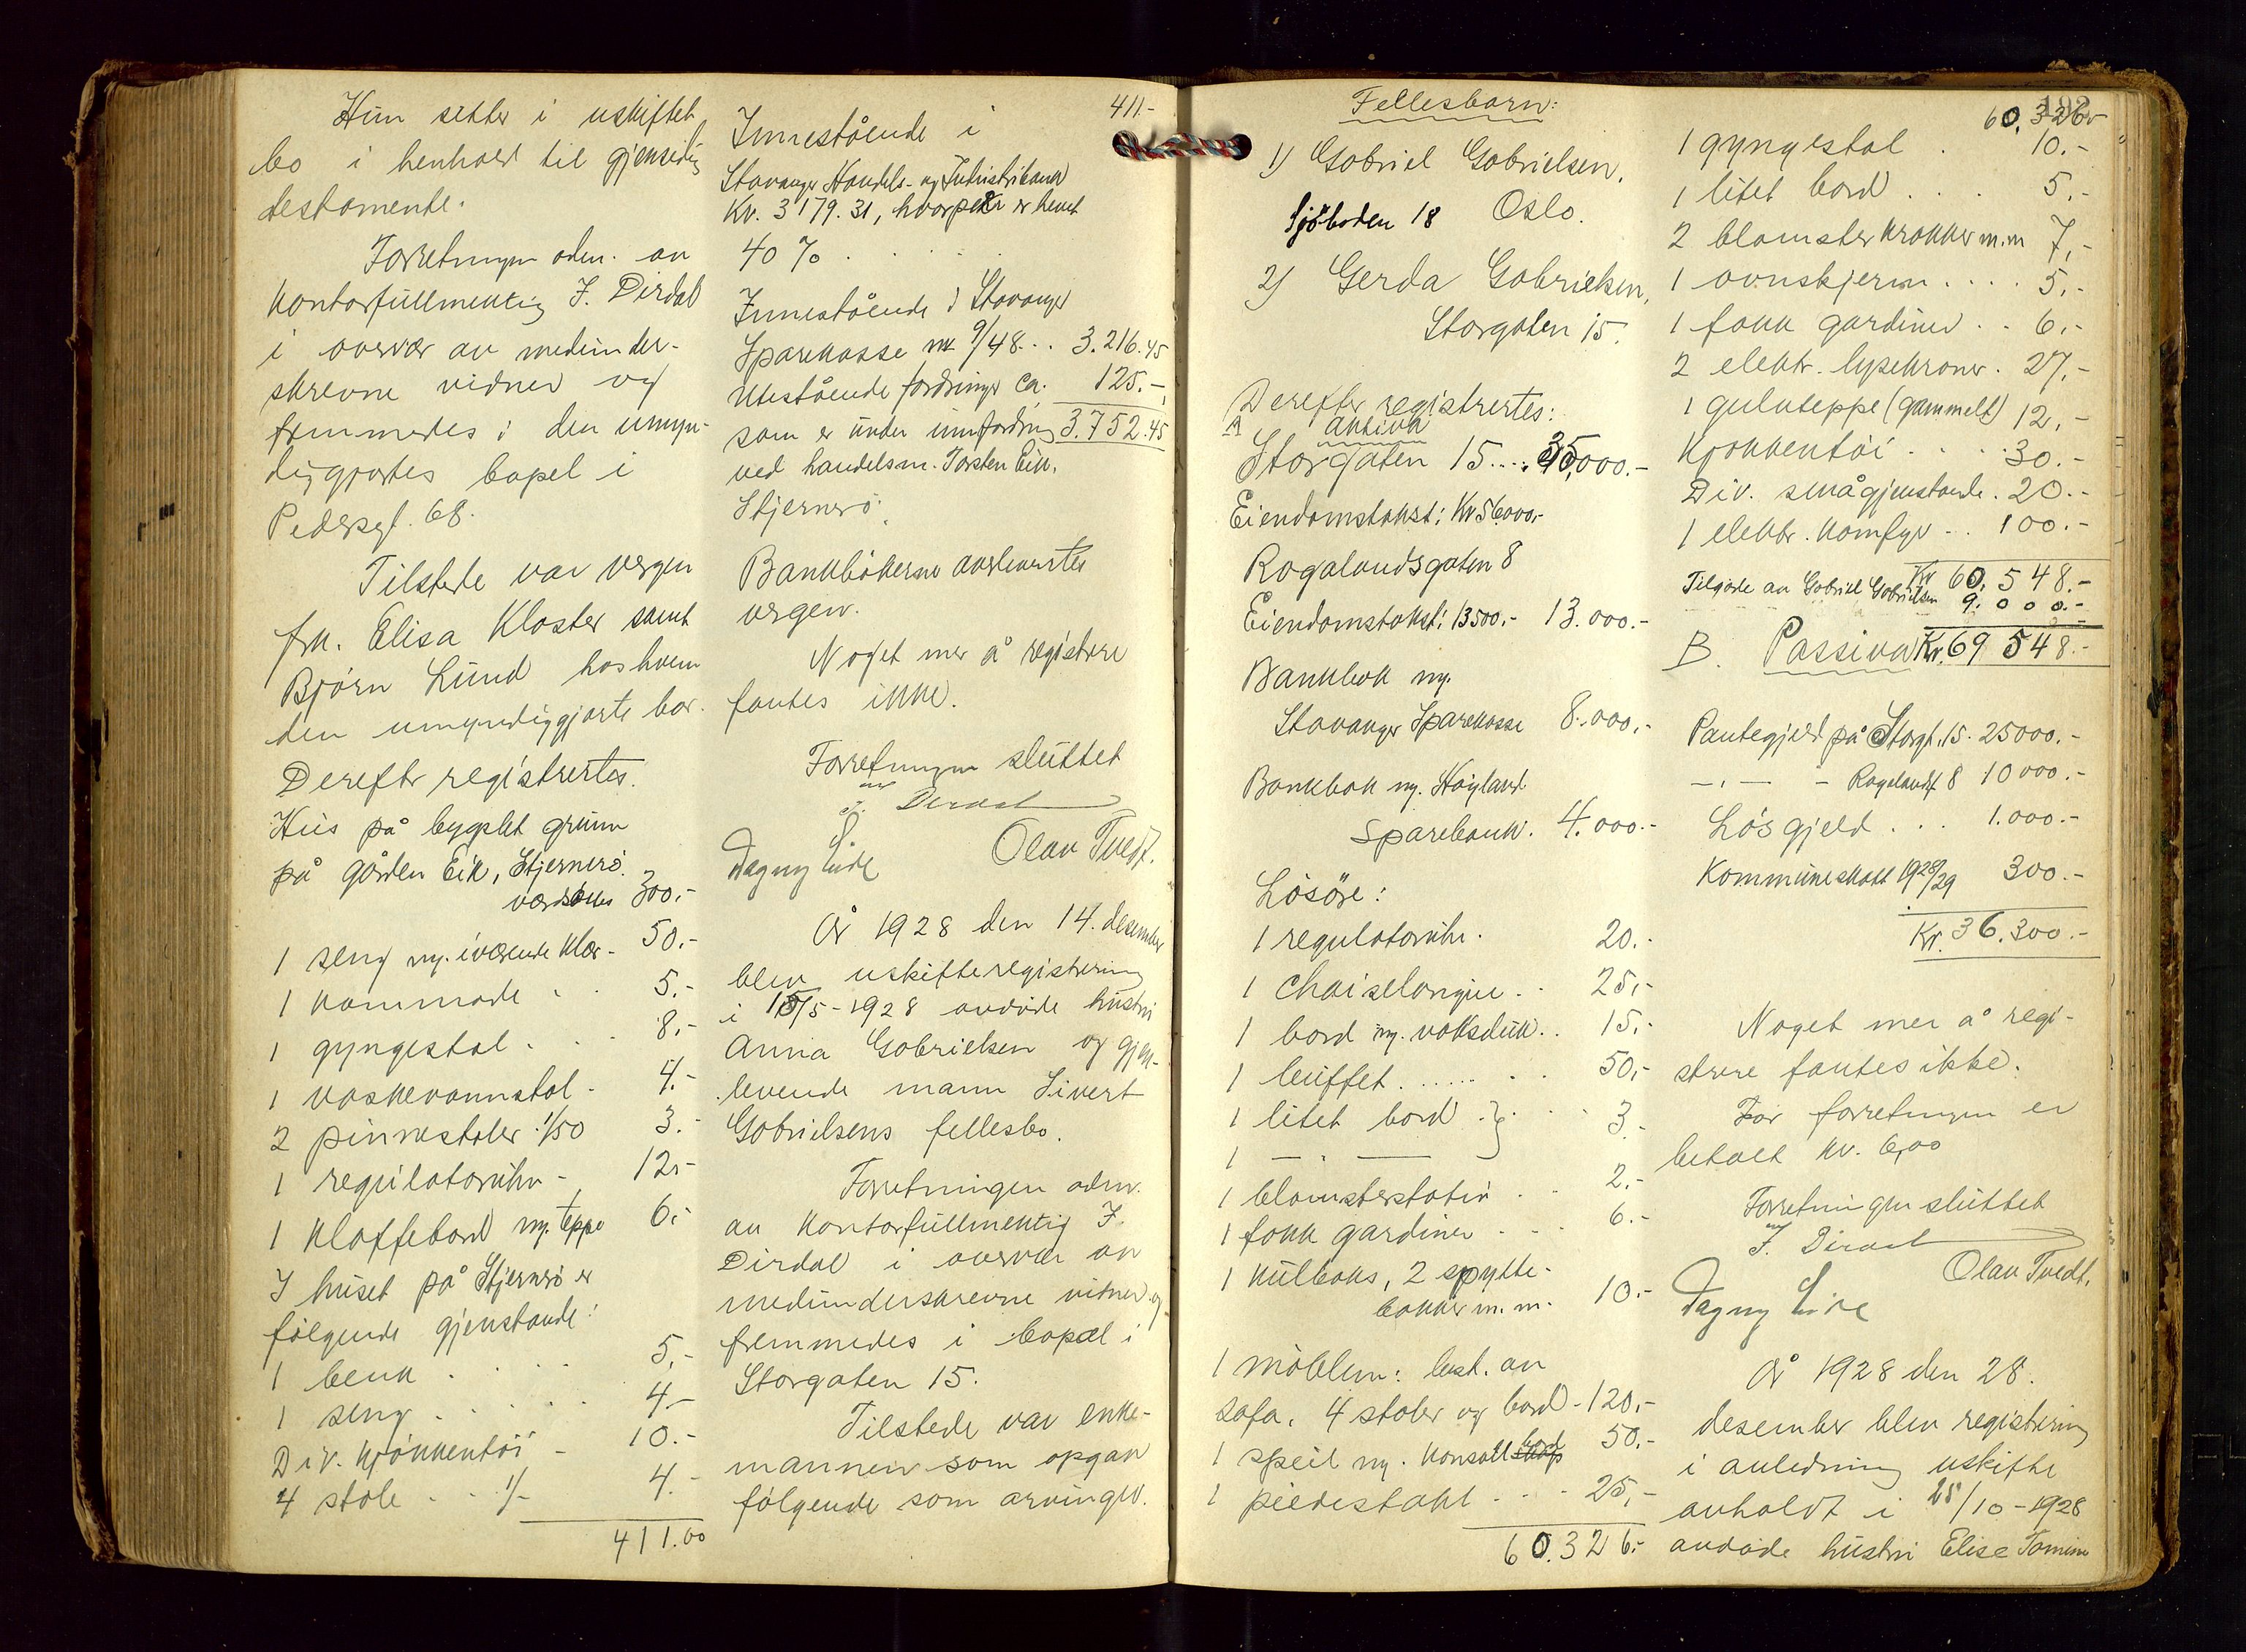 Hun sitter i uskiftet
bo i henhold til gjensidig
testamente.
Forretningen adm. av
kontorfullmektig J. Dirdal
i overvær av medunder-
skrevne vidner og
fremmedes i den umyn-
diggjortes bopel i
Pedersgt. 68.
Tilstede var vergen
frk. Elisa Kloster samt
Bjørn Lund hos hvem
den umyndiggjorte bor.
Derefter registrertes.
Hus på bygslet grunn
på gården Eik, Stjernerø.
verdsattes 300,-
1 seng m. iværende klær - 50.-
1 kommode . . 5.-
1 gyngestol . . . 8,-
1 vaskevannstol - 4.-
2 pinnestoler 1/50 3.-
1 regulatoruhr - 12.-
1 klaffebord m. teppe 6.-
I huset på Stjernerø er
følgende gjenstande:
1 benk . . . . 5,-
1 seng . . . . . 4.-
Div. kjøkkentøi - 10.-
4 stole . . 1/- 4.-
411.00
411-
Innestående i
Stavanger Handels- og Industribank
Kr. 3179.31, hvorpå er hevet
40 % . . . .
Innestående i Stavanger
Sparekasse nr 9/48 . . 3.216.45
Utestående fordringer ca. 125.-
som er under innfordring 3.752.45
ved handelsm. Torsten Eik,
Stjernerø.
Bankbøkerne avlevertes
vergen.
Noget mer å registrere
fantes ikke.
Forretningen sluttet
J. Dirdal
Dagny Lide Olav Tvedt.
År 1928 den 14. desember
blev uskifteregistrering
i 15/5-1928 avdøde hustru
Anna Gabrielsen og gjen-
levende mann Sivert
Gabrielsens fellesbo.
Forretningen adm.
av kontorfullmektig J.
Dirdal i overvær av
medunderskrevne vitner og
fremmedes i bopæl i
Storgaten 15.
Tilstede var enke-
mannen som opgav
følgende som arvinger.
Fellesbarn:
1) Gabriel Gabrielsen,
Sjøboden 18 Oslo.
2) Gerda Gabrielsen,
Storgaten 15.
Derefter registrertes:
A aktiva
Storgaten 15.... 35,000.-
Eiendomstakst: Kr 56000,-
Rogalandsgaten 8
Eiendomstakst: 13500.- 13.000.-
Bankbok m.
Stavanger Sparekasse 8.000,-
Bankbok m. Høyland
Sparebank. 4.000.-
Løsøre:
1 regulatoruhr. 20.-
1 chaiselongue . . 25,-
1 bord m. voksduk . . 15.-
1 buffet . . . . . . 50,-
1 litet bord . } . . . 3.-
1 - . -
1 blomsterstativ . . 2,-
1 fakk gardiner . . . 6.-
1 kulboks, 2 spytte-
bakker m. m. 10.-
1 møblem: best. av
sofa, 4 stoler og bord - 120,-
1 speil m. konsollbord 50,-
1 piedestahl . . . 25,-
60.326.-
60.326.-
1 gyngestol . 10.-
1 litet bord . . . 5.-
2 blomsterkrakker m.m 7,-
1 ovnskjerm . . . . 5.-
1 fakk gardiner . . 6.-
2 elektr. lysekroner . 27.-
1 gulvteppe (gammelt) 12,-
Kjøkkentøi . . . . . 30.-
Div. smågjenstande . 20.-
1 elektr. komfyr . . 100.-
Kr 60.548.-
Tilgode av Gabriel Gabrielsen 9.000.-
B. Passiva Kr. 69 548.-
Pantegjeld på Storgt. 15. 25000.-
- " - - Rogalandsgt 8 10000.-
Løsgjeld . . . 1.000.-
Kommuneskatt 1928/29 300.-
Kr. 36.300.-
Noget mer å regi-
strere fantes ikke.
For forretningen er
betalt kr. 6,00
Forretningen sluttet
J. Dirdal
Olav Tvedt.
Dagny Lide
År 1928 den 28.
desember blev registrering
i anledning uskifte
avholdt i 25/10-1928
avdøde hustru Elise Tomine